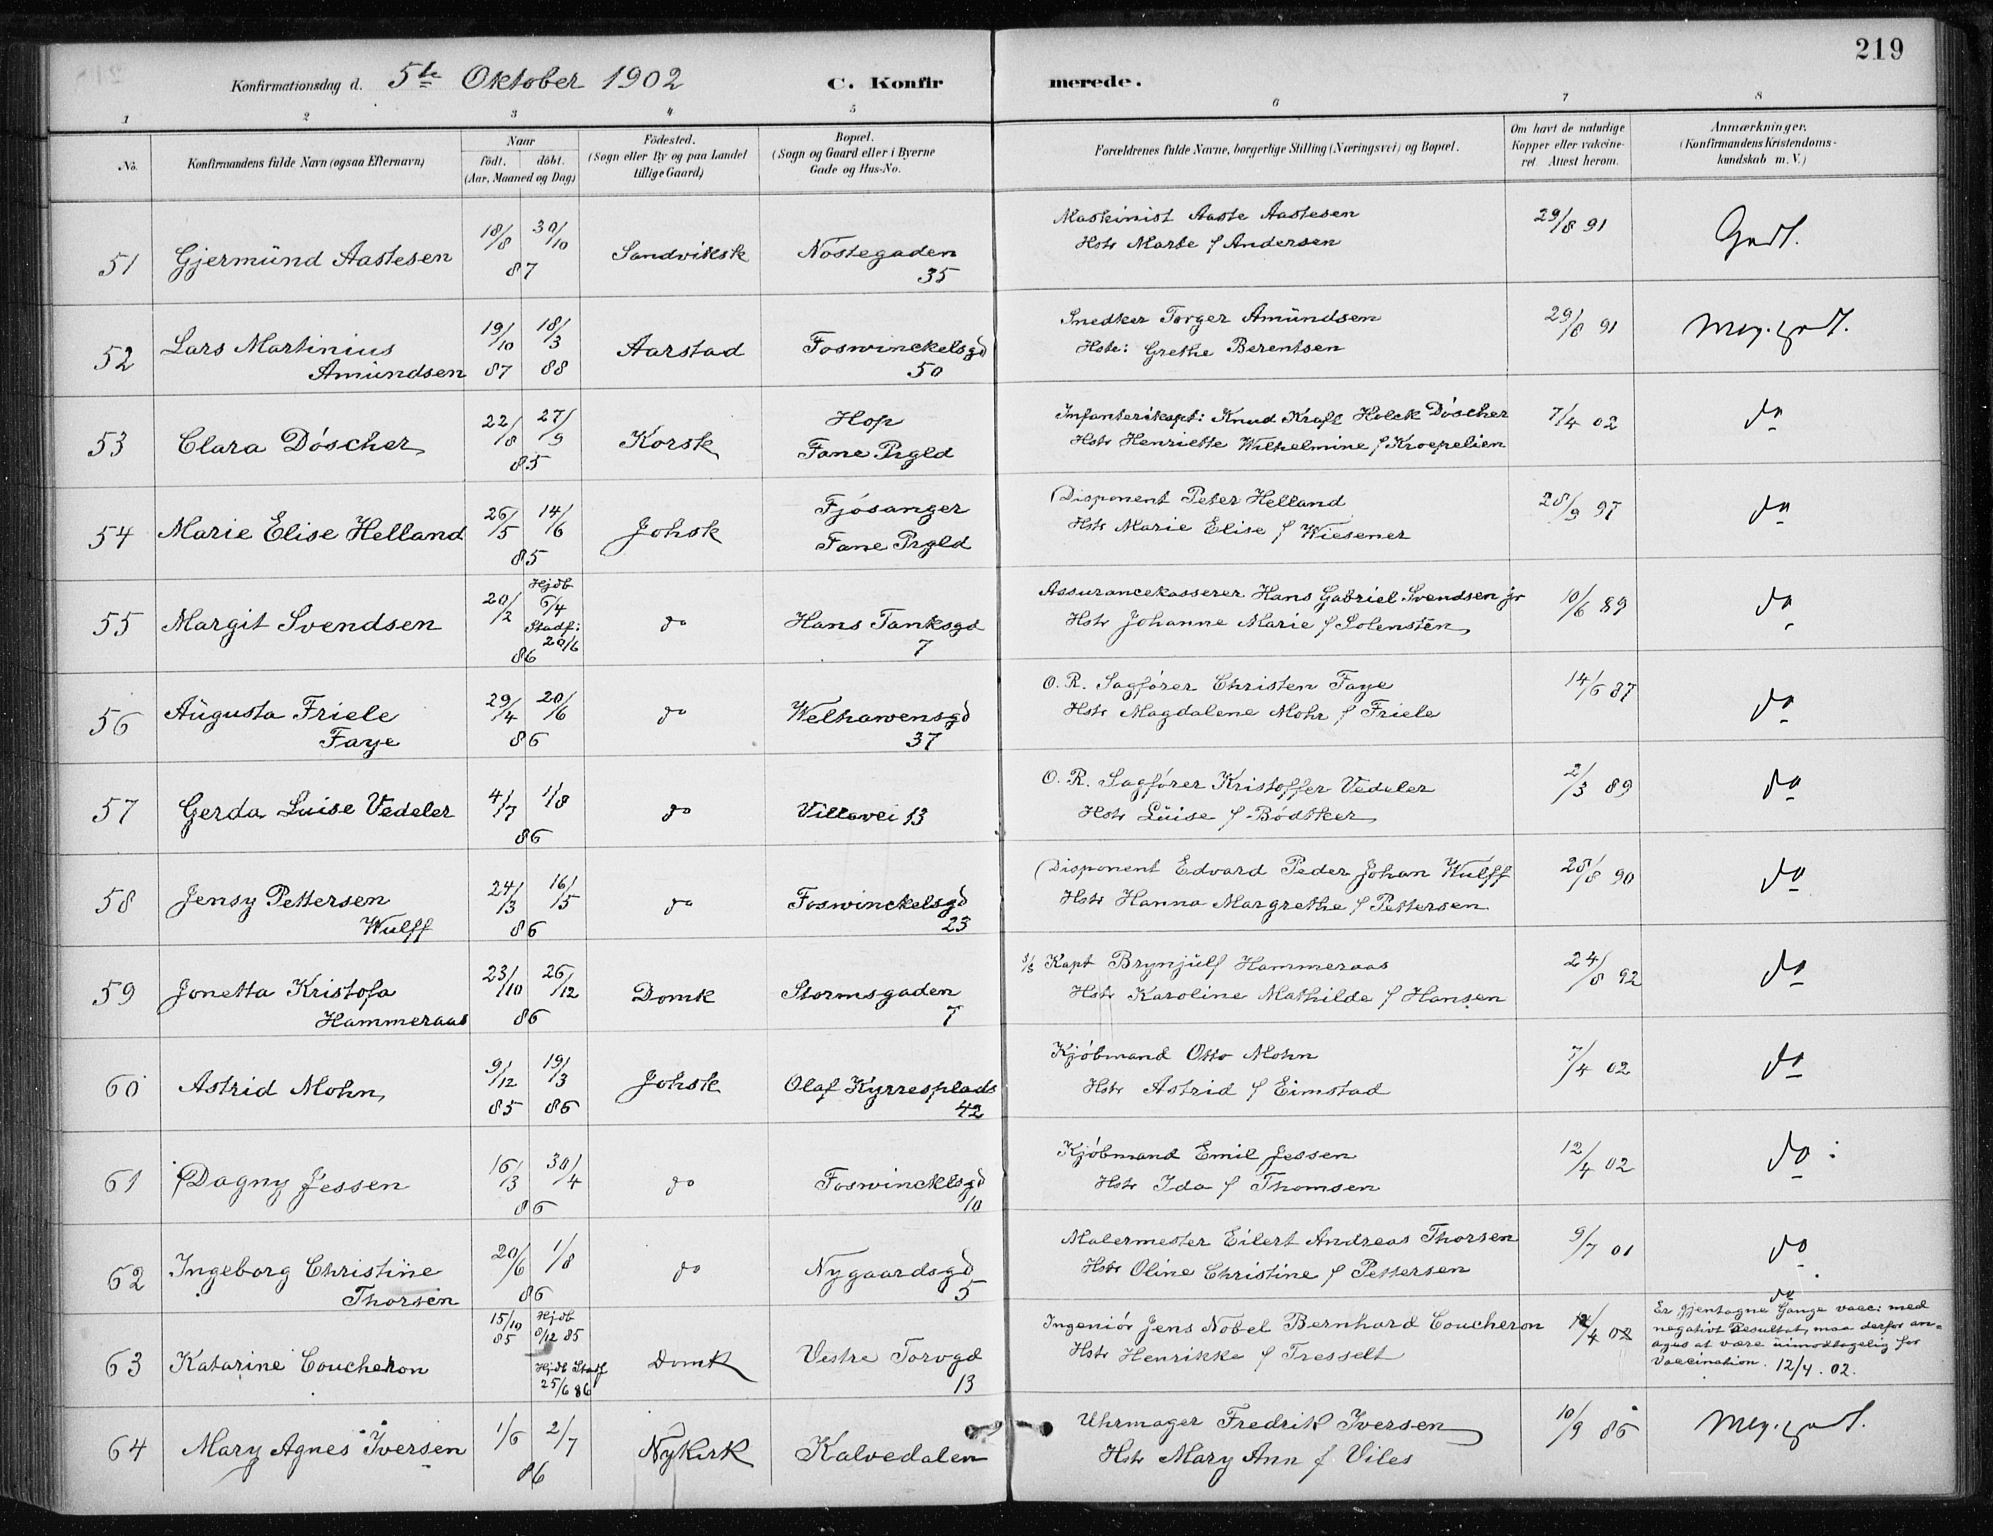 219
Konfirmationsdag d. 5te Oktober 1902 C. Konfirmerede.
1 2 3 4 5 6 7 8
No. Konfirmandens fulde Navn (ogsaa Efternavn) Naar födt. döbt. (Aar, Maaned og Dag) Födested. (Sogn eller By og paa Landet tillige Gaard) Bopæl. (Sogn og Gaard eller i Byerne Gade og Hus-No. Forældrenes fulde Navne, borgerlige Stilling (Næringsvei) og Bopæl. Om havt de naturlige Kopper eller vakcineret. Attest herom. Anmærkninger. (Konfirmandens Kristendomskundskab m. V.)
51 Gjermünd Aastesen 18/8 30/10 87 Sandviksk Nöstegaden 35 Maskinist Aaste Aastesen 29/8 91 Godt.
Hstr Marte f Andersen
52 Lars Martinius Amündsen 19/10 87 18/3 88 Aarstad Foswinckelsgd 50 Snedker Torger Amündsen 29/8 91 Meg. godt.
Hste: Grethe Berentsen
53 Clara Döscher 22/8 27/9 85 Korsk Hop Fane Prgld Infanterikapt: Knud Kraft Holck Döscher 7/4 02 do
Hstr Henriette Wilhelmine f Kroepelien
54 Marie Elise Helland 26/5 14/6 85 Johsk Fjösanger Fane Prgld Disponent Peter Helland 28/9 97 do
Hstr Marie Elise f Wiesener
55 Margit Svendsen 20/2 Hjdb 6/4 Stadf: 20/6 86 do Hans Tanksgd 7 Assurancekasserer Hans Gabriel Svendsen jr 10/6 89 do
Hstr Johanne Marie f Solensten
56 Augusta Friele Faye 29/4 20/6 86 do Welhavensgd 37 O. R. Sagförer Christen Faye 14/6 87 do
Hstr Magdalene Mohr f Friele
57 Gerda Luise Vedeler 4/7 1/8 86 do Villavei 13 O. R. Sagförer Kristoffer Vedeler 2/3 89 do
Hstr Lüise f Bödtker
58 Jensy Pettersen Wulff 24/3 16/5 86 do Foswinckelsgd 23 Disponent Edvard Peder Johan Wulff 28/8 90 do
Hstr Hanna Margrethe f Pettersen
59 Jonetta Kristofa Hammeraas 23/10 26/12 86 Domk Stormsgaden 7 s/s Kapt Brynjülf Hammeraas 24/8 92 do
Hstr Karoline Mathilde f Hansen
60 Astrid Mohn 9/12 85 19/3 86 Johsk Olaf Kyrresplads 42 Kjöbmand Otto Mohn 7/4 02 do
Hstr Astrid f Eimstad
61 Dagny Jessen 16/3 30/4 86 do Foswincklsgd 10 Kjöbmand Emil Jessen 12/4 02 do
Hstr Ida f Thomsen
62 Ingeborg Christine Thorsen 20/6 1/8 86 do Nygaardsgd 5 Malermester Eilert Andreas Thorsen 9/7 01 do
Hstr Oline Christine f Pettersen
63 Katarine Coucheron 15/10 85 Hjdb 8/12 85 Hjdb Stadf 25/6 86 Domk Vestre Torvgd 13 Ingeniör Jens Nobel Bernhard Coucheron 12/4 02 do
Hstr Henrikke f Tresselt
Er gjentagne Gange vacc: med negativt Resultat, maa derfor anages at være uimodtagelig for Vaccination. 12/4. 02.
64 Mary Agnes Iversen 1/6 2/7 86 Nykirk Kalvedalen Uhrmager Fredrik Iversen 10/9 86 Meg. godt.
Hstr Mary Ann f Viles